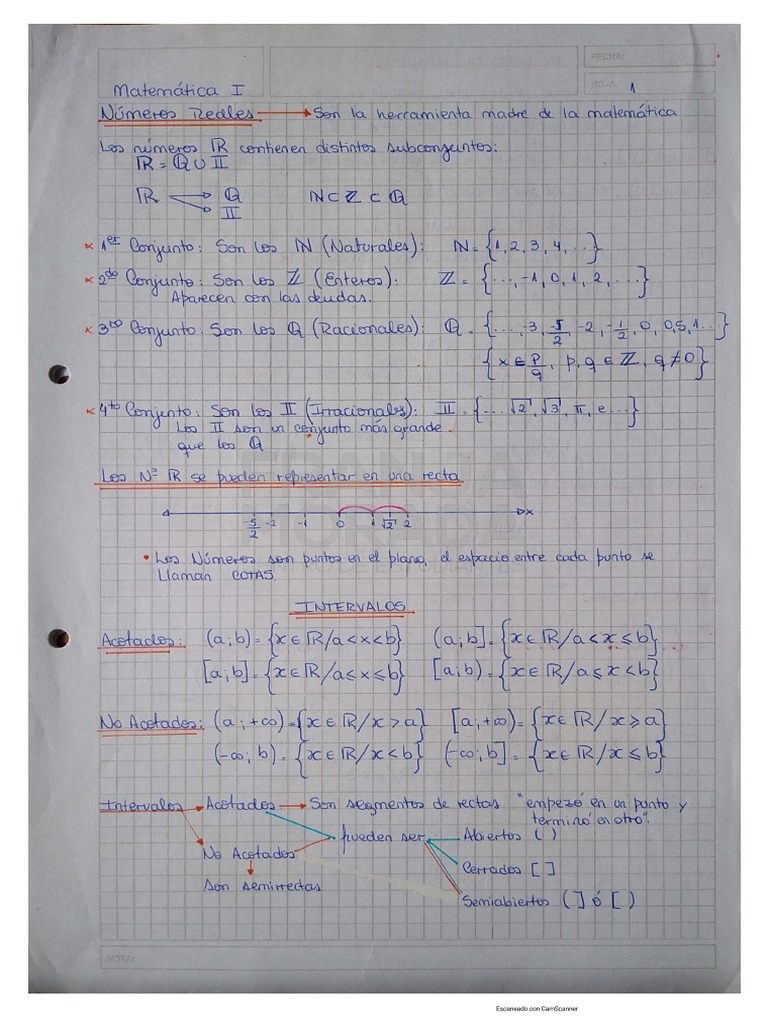 FECHA:
HOJA: 1
Matemática I
Números Reales → Son la herramienta madre de la matemática
Los números ℝ contienen distintos subconjuntos:
ℝ = ℚ ∪ 𝕀
ℝ → ℚ ℕ ⊂ ℤ ⊂ ℚ
→ 𝕀
× 1er Conjunto: Son los ℕ (Naturales): ℕ = {1, 2, 3, 4, ...}
× 2do Conjunto: Son los ℤ (Enteros): ℤ = {..., -1, 0, 1, 2, ...}
Aparecen con las deudas.
× 3ro Conjunto: Son los ℚ (Racionales): ℚ = {..., -3, -5/2, -2, -1/2, 0, 0,5, 1...}
{x ∈ p/q, p, q ∈ ℤ, q ≠ 0}
× 4to Conjunto: Son los 𝕀 (Irracionales): 𝕀 = {... √2, √3, π, e ...}
Los 𝕀 son un conjunto más grande
que los ℚ
Los Nº ℝ se pueden representar en una recta
-5/2 -2 -1 0 1 √2 2 x
• Los Números son puntos en el plano, el espacio entre cada punto se
llaman COTAS.
INTERVALOS
Acotados: (a;b) = {x ∈ ℝ / a < x < b} (a;b] = {x ∈ ℝ / a < x ≤ b}
[a;b] = {x ∈ ℝ / a ≤ x ≤ b} [a;b) = {x ∈ ℝ / a ≤ x < b}
No Acotados: (a;+∞) = {x ∈ ℝ / x > a} [a;+∞) = {x ∈ ℝ / x ≥ a}
(-∞;b) = {x ∈ ℝ / x < b} (-∞;b] = {x ∈ ℝ / x ≤ b}
Intervalos → Acotados → Son segmentos de rectas "empezó en un punto y
terminó en otro".
pueden ser Abiertos ( )
No Acotados
Cerrados [ ]
Son semirrectas
Semiabiertos ( ] ó [ )
NOTA:
Escaneado con CamScanner